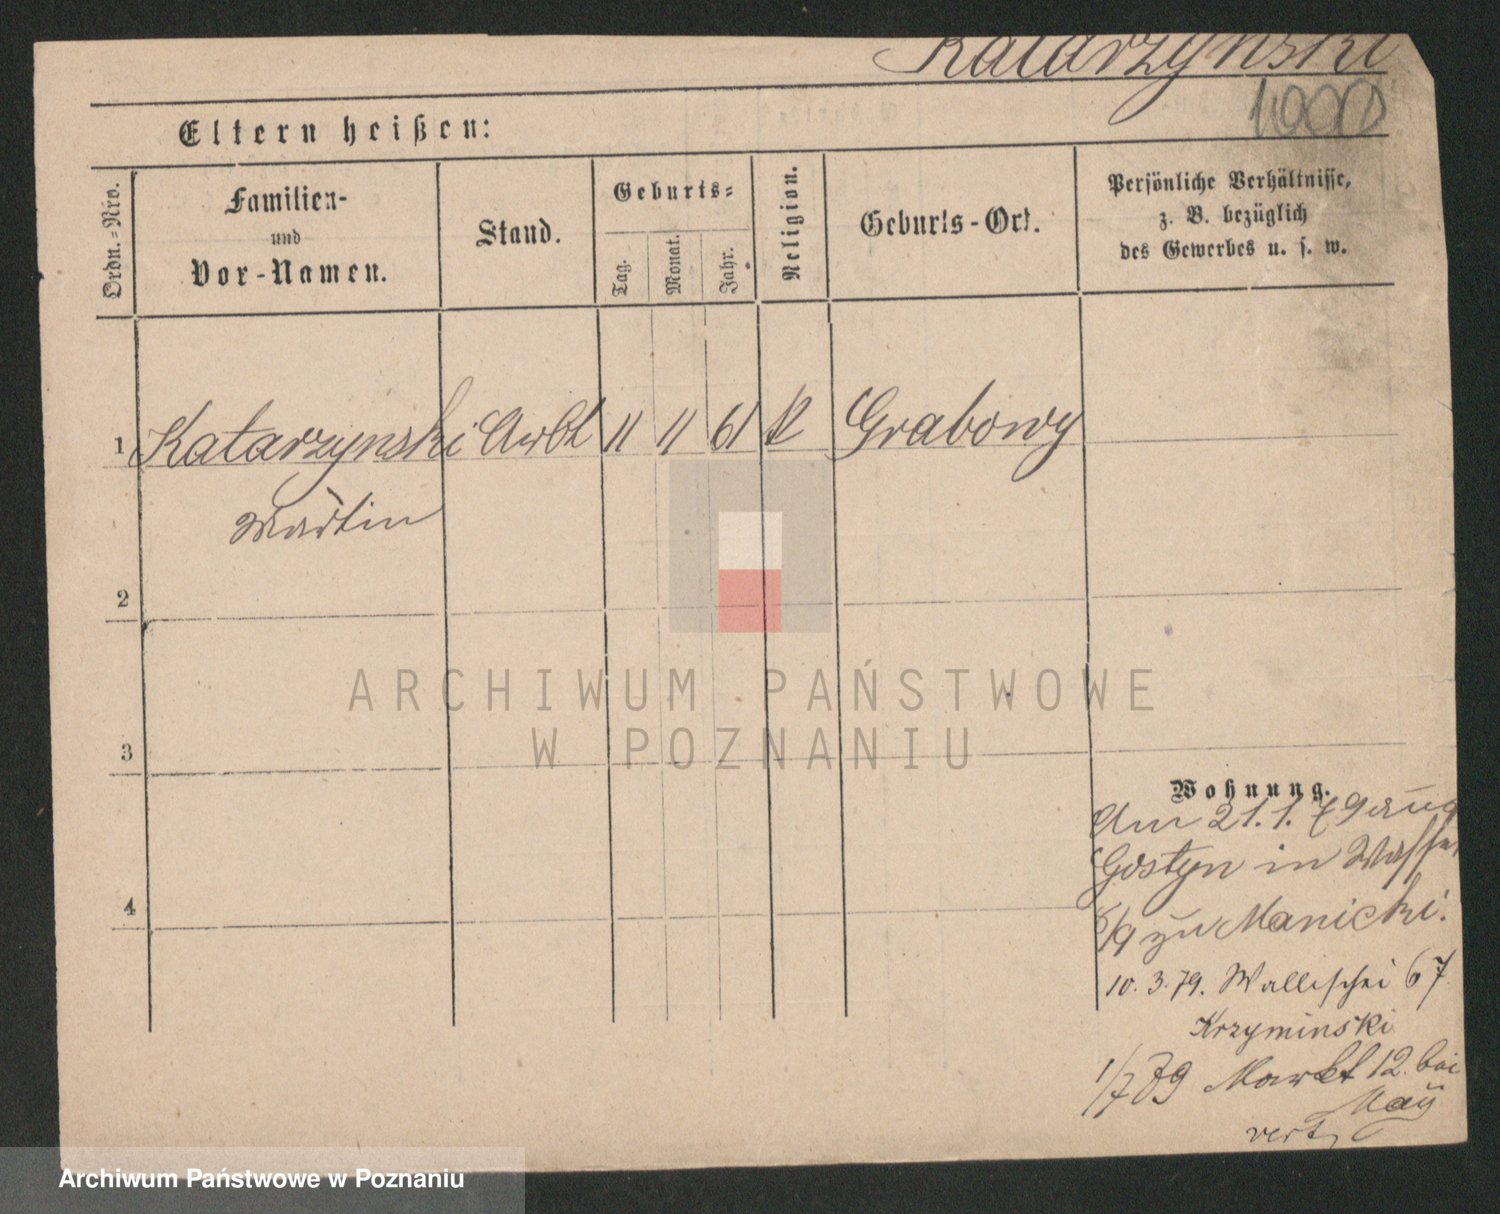 Katarzynski
1000
Eltern heißen:
Ordn.=Nro.
Familien-
und
Vor-Namen.
Stand.
Geburts=
Tag.
Monat.
Jahr.
Religion.
Geburts-Ort.
Persönliche Verhältnisse,
z. B. bezüglich
des Gewerbes u. s. w.
1 Katarzynski Arbt 11 11 61 k Grabowy
Martin
2
3
4
Wohnung.
Am 21.1.79 aus
Gostyn in
8/9 zu Manicki.
10. 3. 79. Wallischei 67
Krzyminski
1/7 79 Markt 12. bei
May
vert
ARCHIWUM PAŃSTWOWE
W POZNANIU
Archiwum Państwowe w Poznaniu